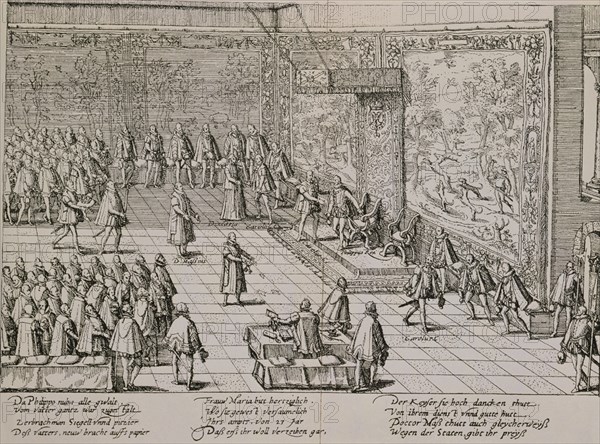 PHOTO 12
Da Philippo nuhn alle gwalt
Vom Vatter gantz war
Zerbrach man Siegell vnnd pitzier
Deß vatters, neuw brachte auffs papier
Frauw Maria bitt hertziglich
Wo sie gewest versaumlich
Ihrs ampt, von 25 Jar
Daß erß ihr woll verzeihen gar,
Der Keyser sie hoch dancken thutt
Von ihrem dienst vnnd gutte hutt
Doctor Maß thutt auch gleycherweyß
Wegen der Staten, gibt ihr preyß